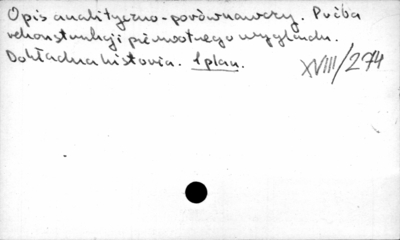 Opis analityczno-porównawczy. Próba
rekonstrukcji pierwotnego wyglądu.
Dokładna historia. 1 plan.
XVIII/274